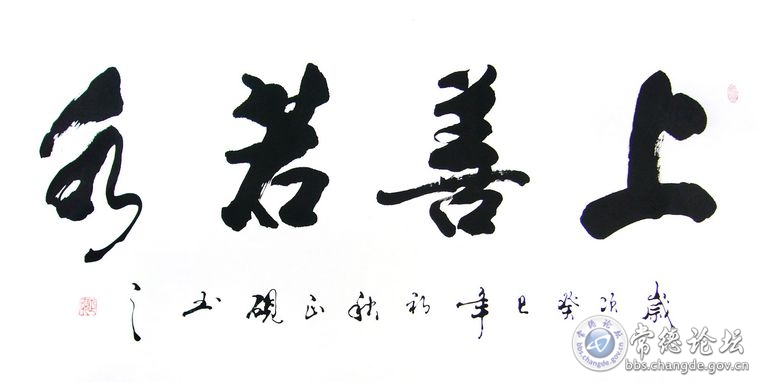 上善若水
歲次癸巳年初秋正硯书之
常德论坛
bbs.changde.gov.cn